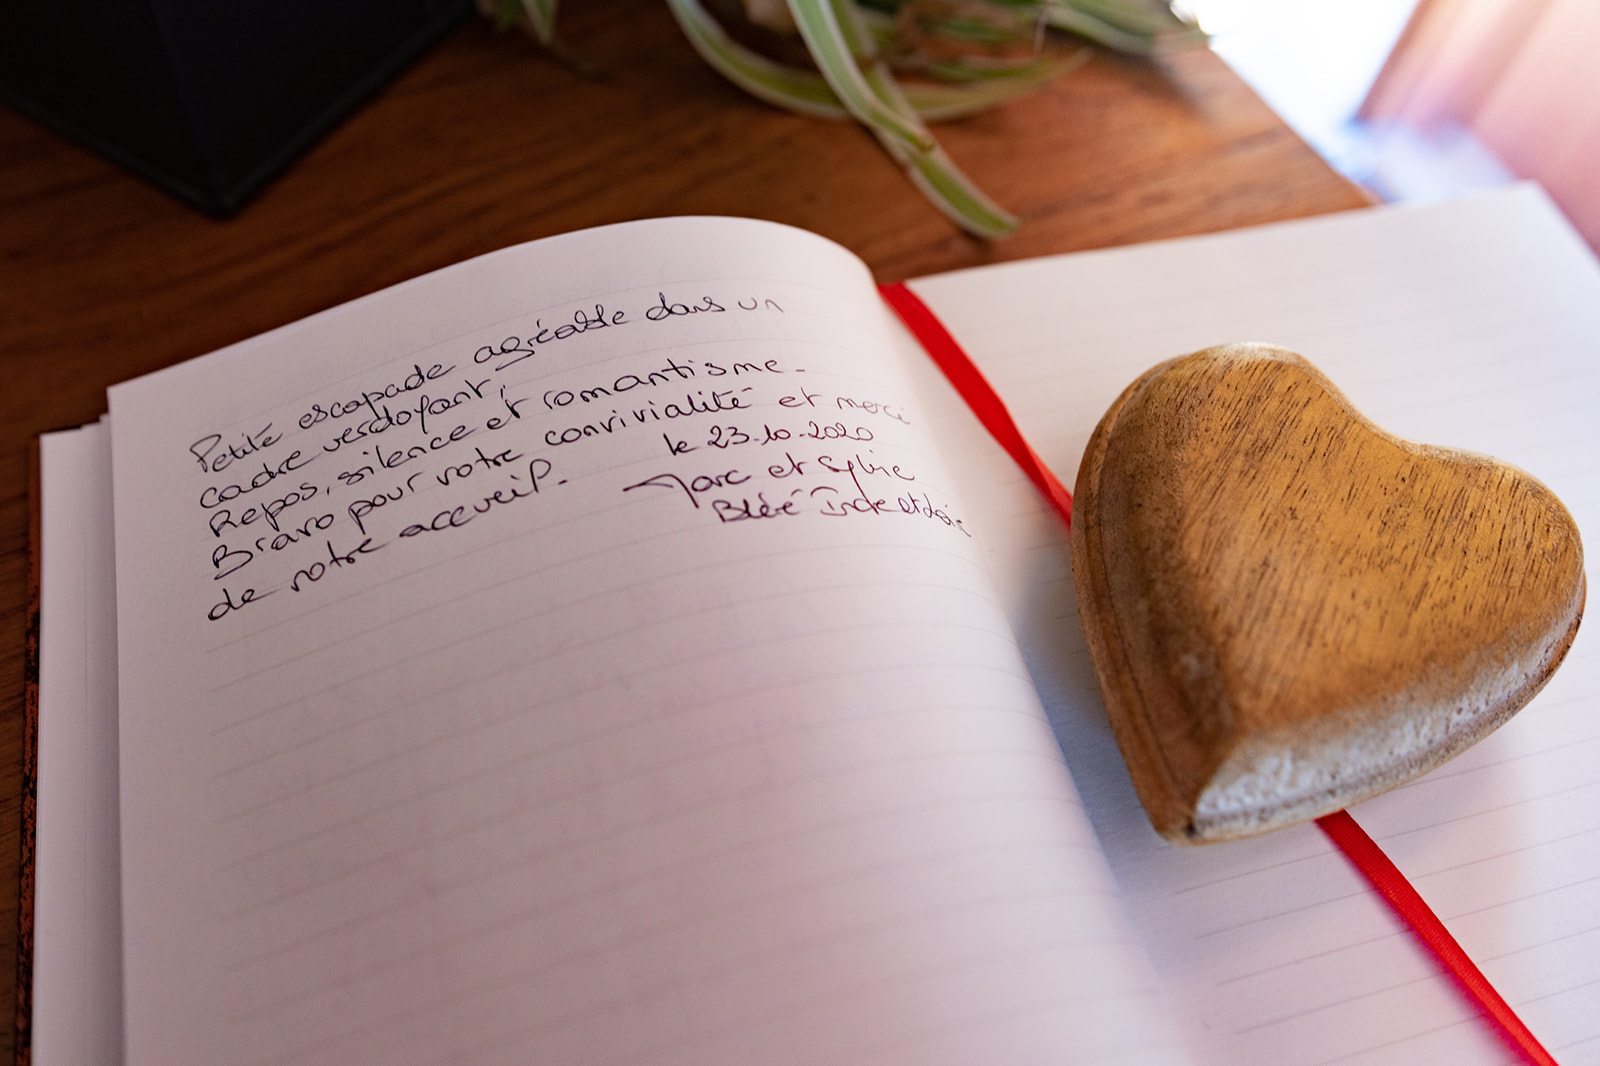 Petite escapade agréable dans un
cadre verdoyant,
Repos, silence et romantisme.
Bravo pour votre convivialité et merci
de votre accueil.
le 23.10.2020
Marc et Sylvie
Bléré Indre et Loire